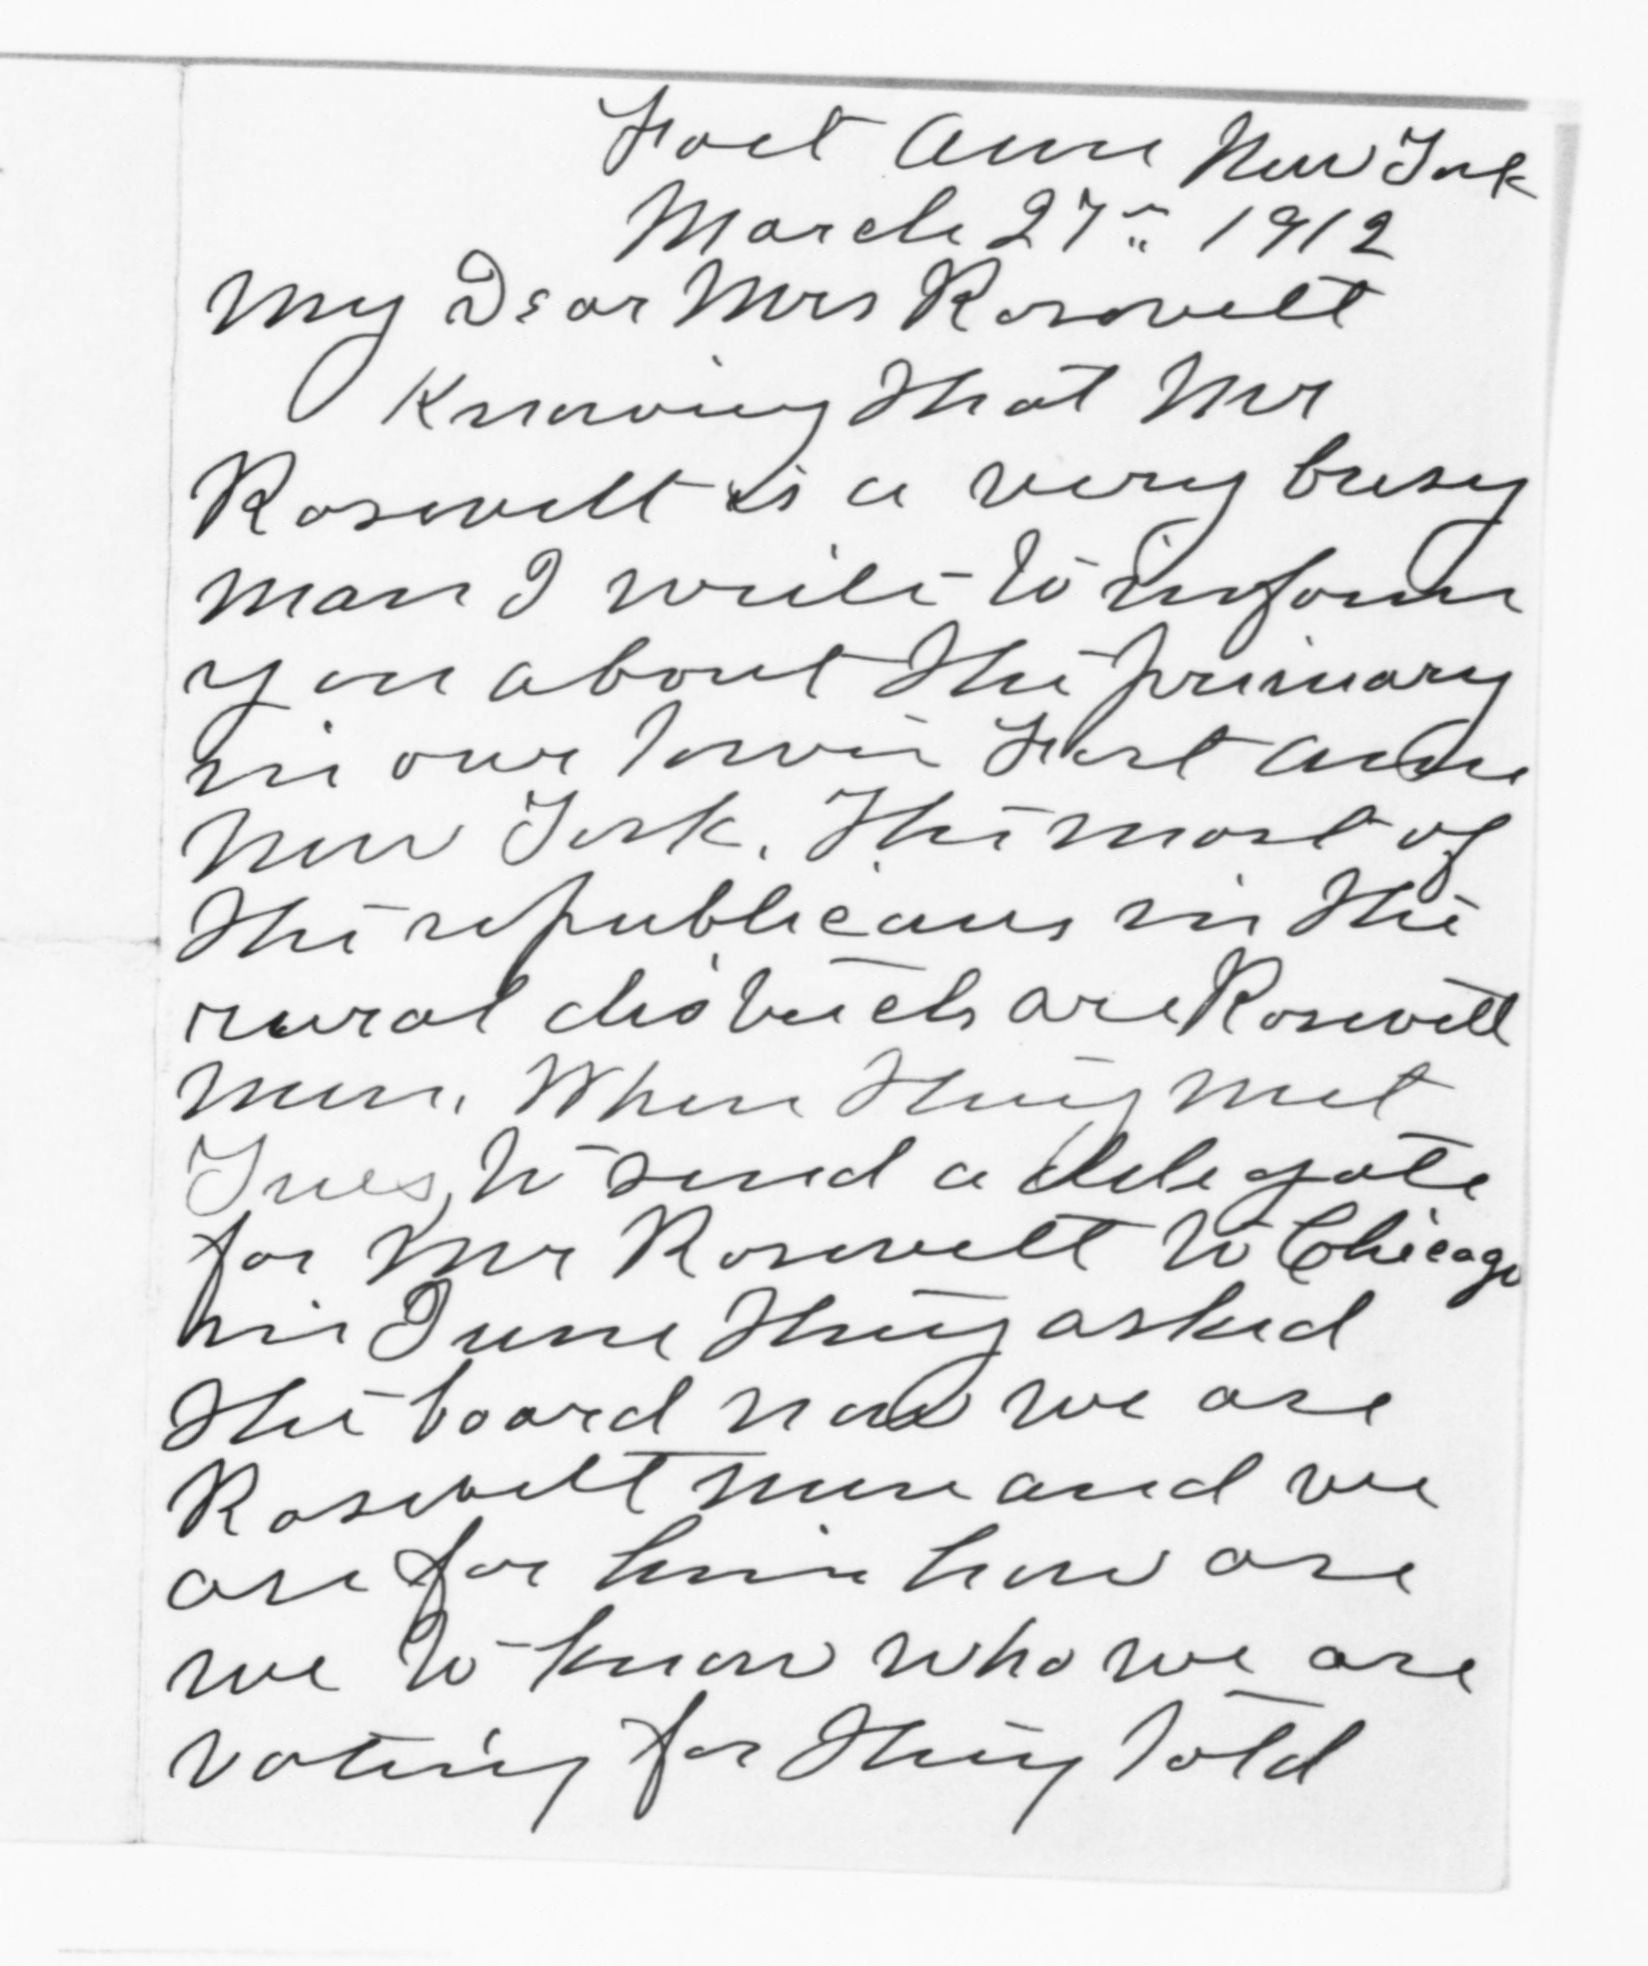 Fort Ann New York
March 27" 1912
My Dear Mrs Rosovelt
Knowing that Mr
Rosevelt is a very busy
man I write to inform
you about the primary
in our town Fort Ann
New York. The most of
the republicans in the
rural districts are Rosevelt
men. When they met
Tues, to send a delegate
for Mr Rosevelt to Chicago
in June they asked
the board now we are
Rosevelt men and we
are for him how are
we to know who we are
voting for they told